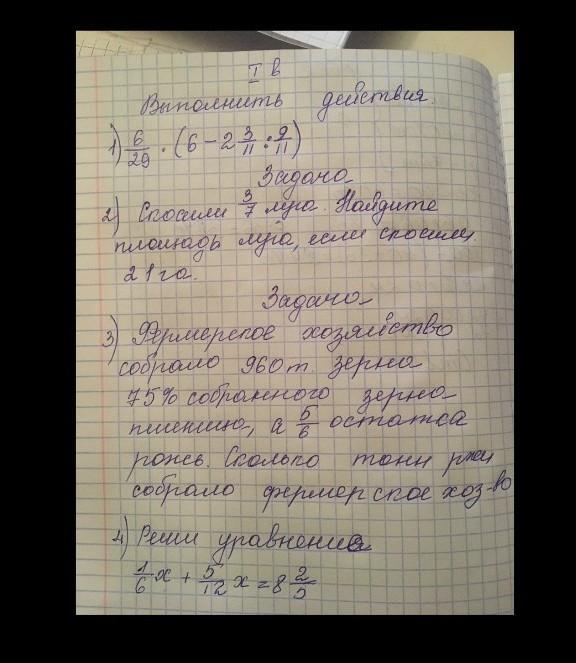 I в
Выполнить действия.
1) 6/29 · (6 - 2 3/11 : 9/11)
Задача
2) Скосили 3/7 луга. Найдите
площадь луга, если скосили
21 га.
Задача
3) Фермерское хозяйство
собрало 960 т. зерна
75% собранного зерна
пшеницы, а 5/6 остатка
рожь. Сколько тонн ржи
собрало фермерское хоз-во
4) Реши уравнение
1/6 x + 5/12 x = 8 2/5